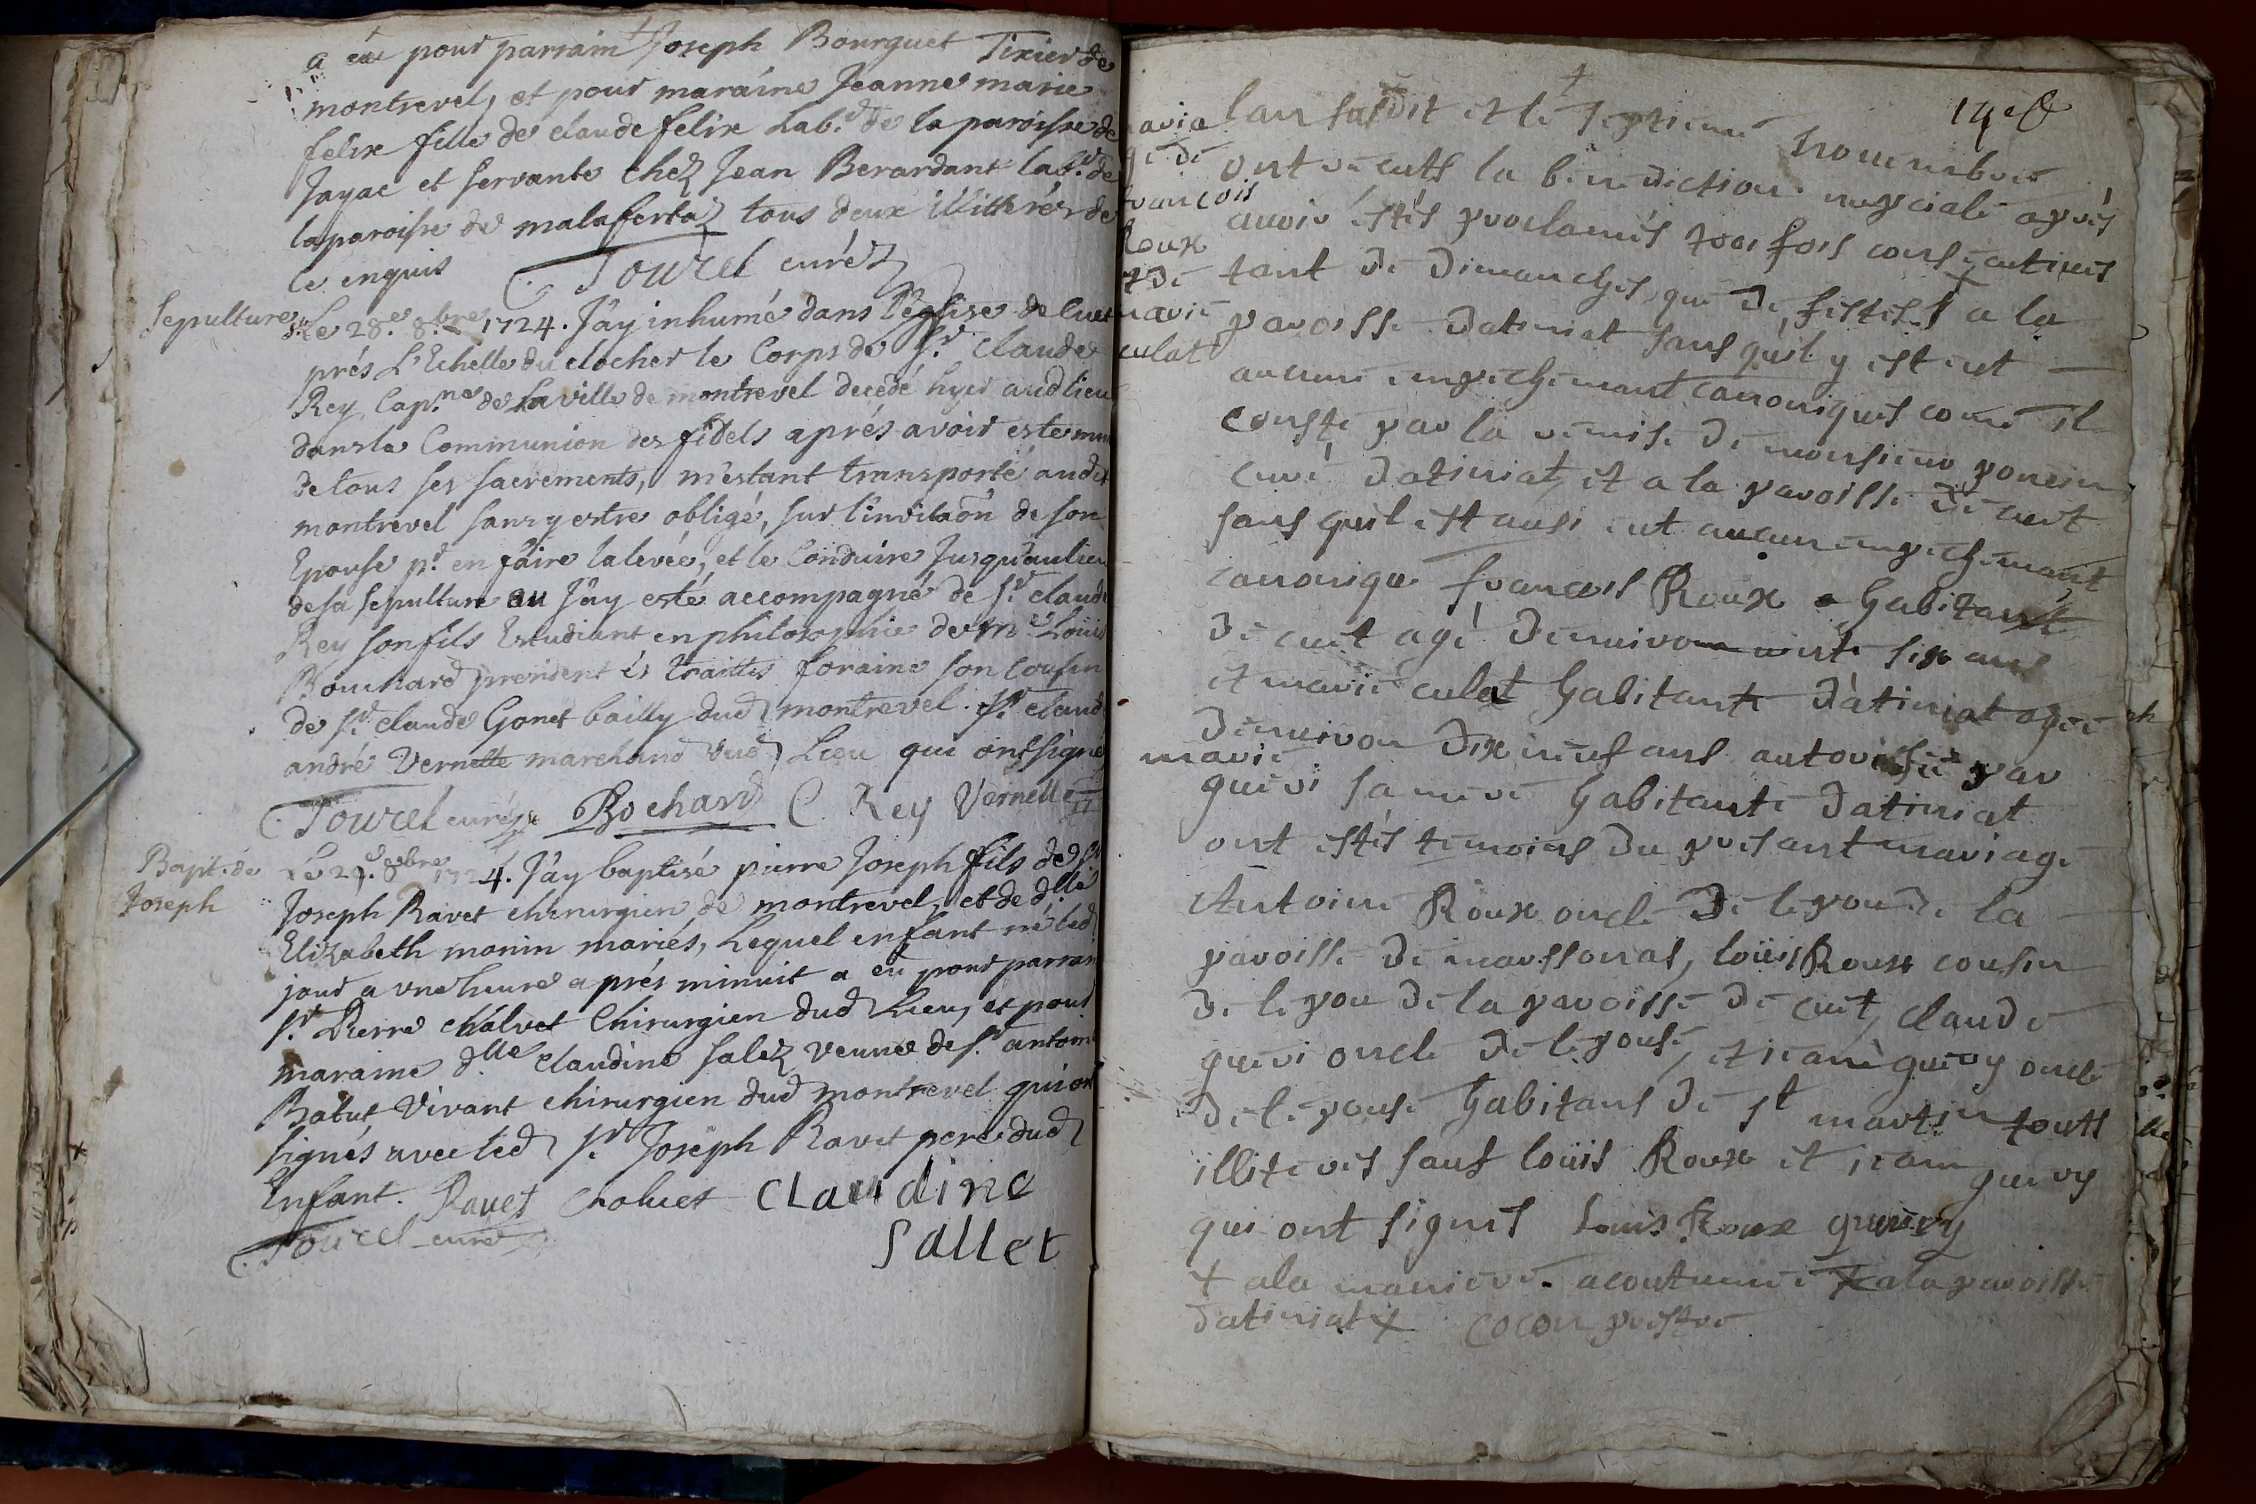 a eu pour parrain Joseph Bourguet Tixier de
montrevel, et pour maraine Jeanne marie
felix fille de claude felix Lab.r de la paroisse de
Jayac et servante chez Jean Berardant lab.r de
la paroisse de malafertaz tous deux illitérés de
ce enquis Tourel curéz
Sepulture
Le 28.e 8.bre 1724. J'ay inhumé dans l'église de Cuet
prés L'Echelle du clocher le Corps de S.r Claude
Rey Cap.ne de la ville de montrevel decedé hyer aud lieu
dans la Communion des fidels aprés avoir esté muni
de tous ses sacrements, m'estant transporté audit
montrevel sans y estre obligé, sur l'invitaôn de son
Epouse p.r en faire la levée, et le Conduire Jusqu'au lieu
de sa sepulture ou J'ay esté accompagné de S.r claude
Rey son fils Estudiant en philosophie de M.e Louis
Bouchard president és traittes foraine son cousin
de S.r claude Gonet bailly dud montrevel. S.r claude
andré Vernette marchand dud Lieu qui ont signé
C. Tourel curéz Bochard C. Rey Vernette
Bapt. de
Joseph
Le 29.e 8bre 1724. J'ay baptisé pierre Joseph fils de S.r
Joseph Ravet chirurgien de montrevel, et de d.lle
Elizabeth monin mariés, Lequel enfant né led.
jour a vne heure aprés minuit a eu pour parrain
S.r Pierre chalvet Chirurgien dud Lieu, et pour
maraine d.lle Claudine salez veuve de S.r antoine
Batut Vivant chirurgien dud montrevel qui ont
signés avec led S.r Joseph Ravet pere dud
Enfant. Ravet Chaluet CLaudine
C. Tourel curé Sallet
14e
maria
ge de
francois
Roux
et de
marie
culat
lan susdit et le septieme novembre
ont receuts la benediction nupciale apres
auoir éstés proclamés trois fois consecutiues
tant de dimanches que de festes + a la
paroisse datiniat sans quil y est eut
aucune empechemant canoniques come il
conste par la remise de monsieur poncin
curé datiniat, et a la paroisse de cuet
sans quil est ausi eut aucun empechemant
canonique francois Roux habitant
de cuet agé denuiron uinte six ans
et marie culat habitante datiniat agee
denuiron dix neuf ans autorisée par
marie
guévi sa mere habitante datiniat
ont estés temoins du presant mariage
Antoine Roux oncle de lepou de la
paroisse de marssonas, loüis Roux cousin
de lepou de la paroisse de cuet, claude
guevi oncle de lepouse, et jeane guevy oncle
de lepouse habitans de st martin touts
illiteres sauf loüis Roux et jean guevy
qui ont signes Louis Roux guevey
+ ala maniere acoutumee + ala paroisse
datiniat + cocon prestre